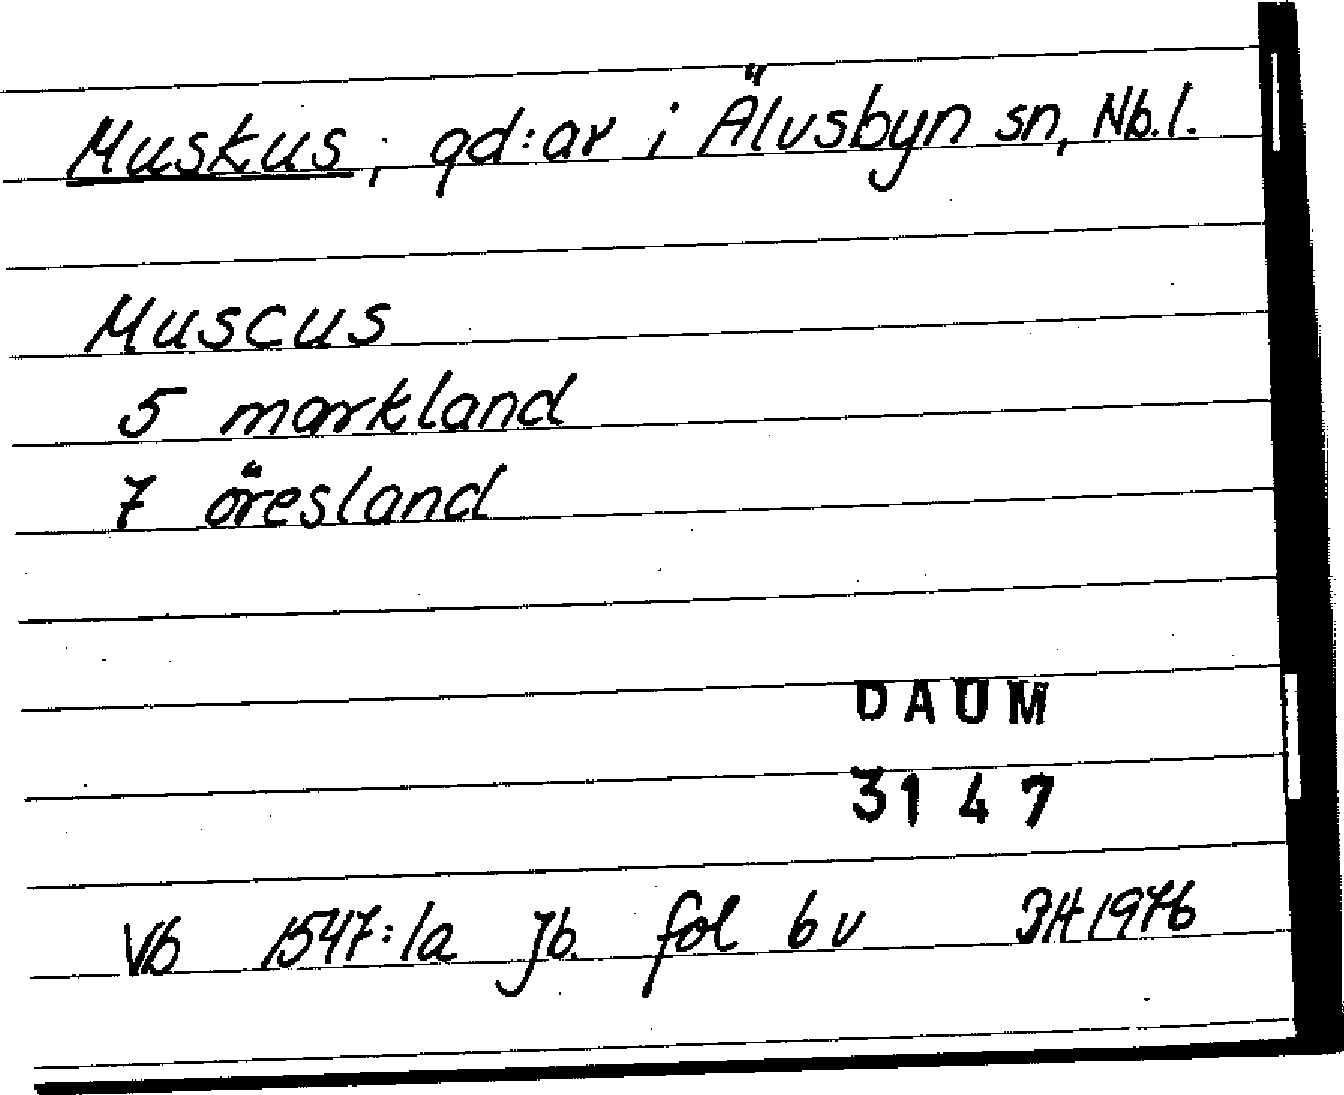 Muskus, gd:ar i Älvsbyn sn, Nb.l.
Muscus
5 markland
7 öresland
DAUM
3147
Vb 1547:1a Jb. fol 6 v BH 1976